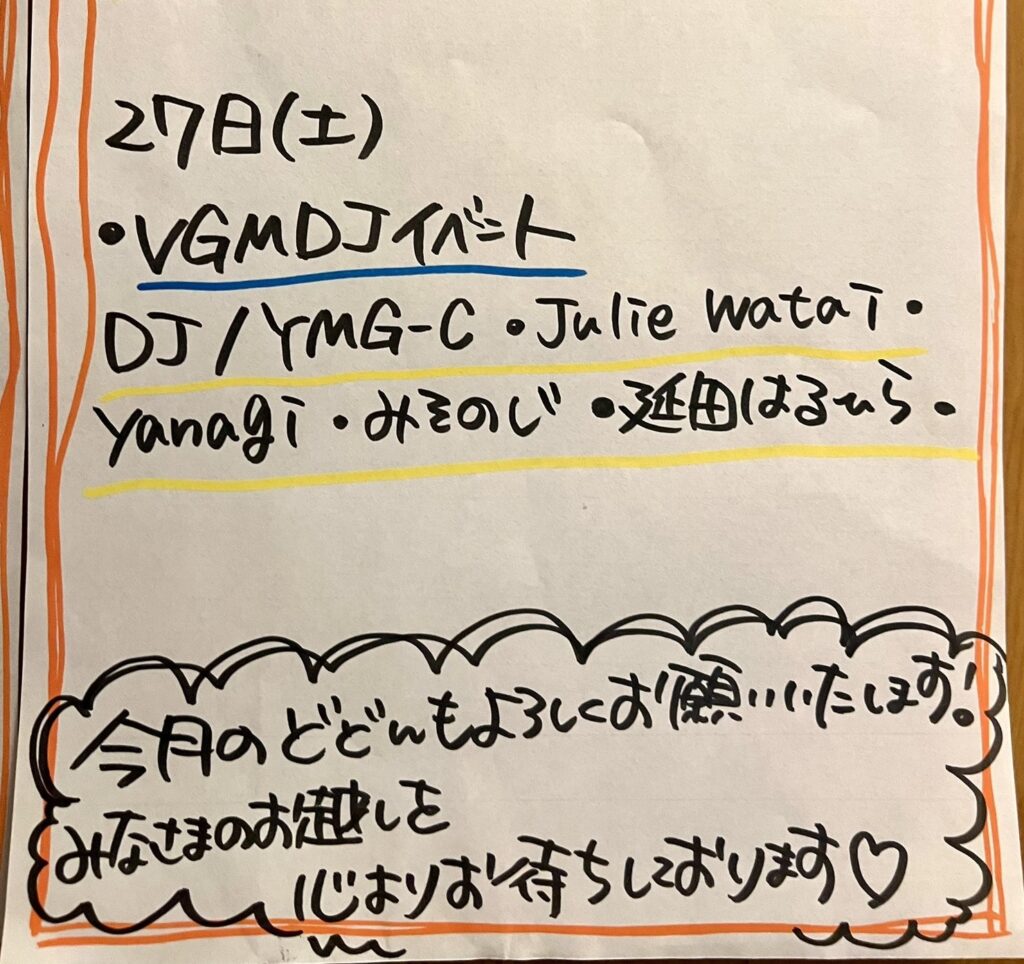 27日(土)
・VGMDJイベント
DJ/YMG-C・Julie Watai・
yanagi・みそのじ・延田はるひら・
今月のどどんもよろしくお願いいたします!
みなさまのお越しを
心よりお待ちしております♡